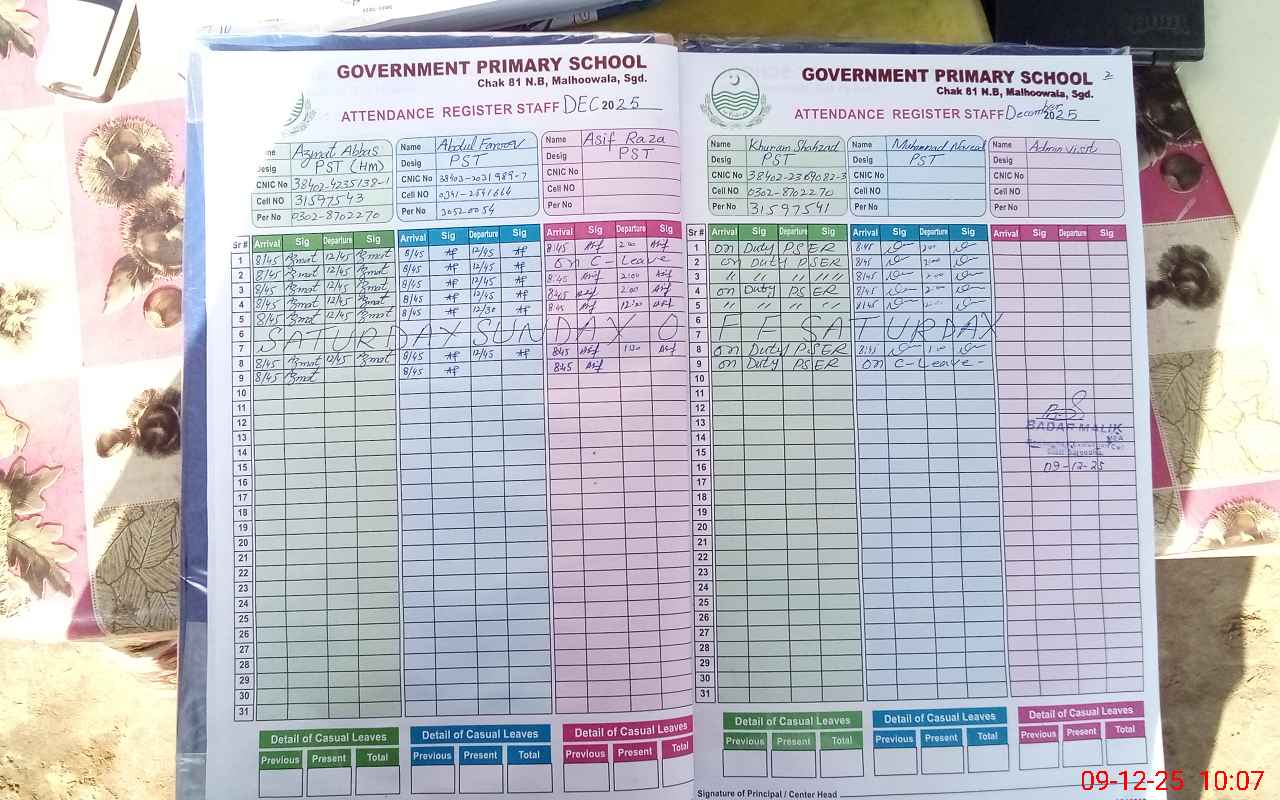 GOVERNMENT PRIMARY SCHOOL
Chak 81 N.B, Malhoowala, Sgd.
ATTENDANCE REGISTER STAFF DEC 2025
Name Azmat Abbas
Desig PST (HM)
CNIC No 38402-4235138-1
Cell NO 31597543
Per No 0302-8702270
Name Abdul Farooq
Desig PST
CNIC No 38403-2031989-7
Cell NO 0341-2591664
Per No 30520054
Name Asif Raza
Desig PST
CNIC No
Cell NO
Per No
Sr # Arrival Sig Departure Sig Arrival Sig Departure Sig Arrival Sig Departure Sig
1 8/45 Azmat 12/45 Azmat 8/45 12/45 8:45 Asif 2:00 Asif
2 8/45 Azmat 12/45 Azmat 8/45 12/45 on C-Leave
3 8/45 Azmat 12/45 Azmat 8/45 12/45 8:45 Asif 2:00 Asif
4 8/45 Azmat 12/45 Azmat 8/45 12/45 8:45 Asif 2:00 Asif
5 8/45 Azmat 8/45 12/30 8:45 Asif 12:00 Asif
6 SATURDAY SUNDAY O
7
8 8/45 Azmat 12/45 Azmat 8/45 12/45 8:45 Asif Asif
9 8/45 Azmat 8/45 8:45 Asif
10
11
12
13
14
15
16
17
18
19
20
21
22
23
24
25
26
27
28
29
30
31
Detail of Casual Leaves Detail of Casual Leaves Detail of Casual Leaves
Previous Present Total Previous Present Total Previous Present Total
GOVERNMENT PRIMARY SCHOOL 2
Chak 81 N.B, Malhoowala, Sgd.
ATTENDANCE REGISTER STAFF December 2025
Name Khuram Shahzad
Desig PST
CNIC No 38402-2369082-3
Cell NO 0302-8702270
Per No 31597541
Name Muhammad Naveed
Desig PST
CNIC No
Cell NO
Per No
Name Admin visit
Desig
CNIC No
Cell NO
Per No
Sr # Arrival Sig Departure Sig Arrival Sig Departure Sig Arrival Sig Departure Sig
1 on Duty PSER 8:45 2:00
2 on Duty PSER 8:45 2:00
3 " " " " " " 8:45 2:00
4 on Duty PSER 8:45 2:00
5 " " " " " 8:45 2:00
6 F F SATURDAY
7
8 on Duty PSER 8:45 1:00
9 on Duty PSER on C-Leave-
10
11
12
13
14
15
16
17
18
19
20
21
22
23
24
25
26
27
28
29
30
31
BADAR MALIK
MEA
09-12-25
Detail of Casual Leaves Detail of Casual Leaves Detail of Casual Leaves
Previous Present Total Previous Present Total Previous Present Total
Signature of Principal / Center Head
09-12-25 10:07